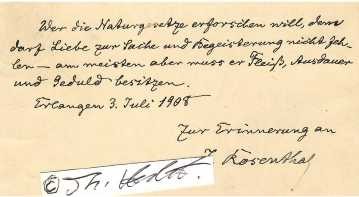 Wer die Naturgesetze erforschen will, dem
darf Liebe zur Sache und Begeisterung nicht feh-
len – am meisten aber muss er Fleiß, Ausdauer
und Geduld besitzen.
Erlangen 3. Juli 1908
Zur Erinnerung an
J. Rosenthal
© Th.